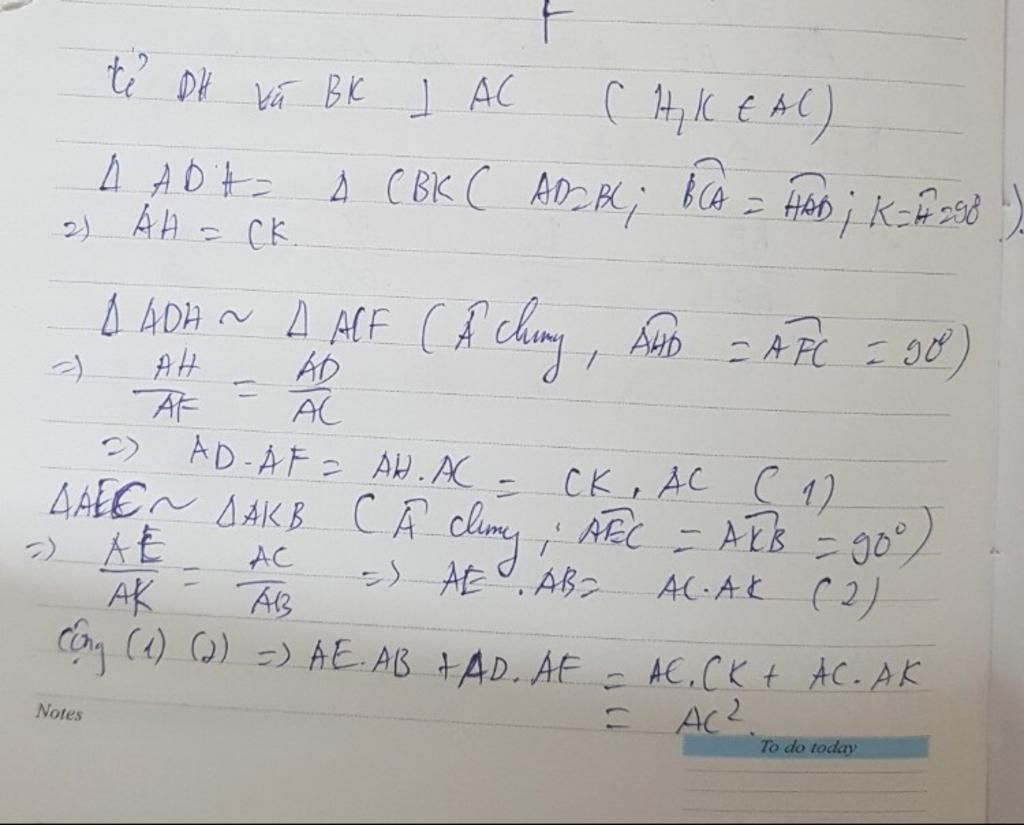 F
kẻ DH và BK ⊥ AC ( H,K ∈ AC)
Δ ADH = Δ CBK ( AD=BC; BCA = HAD; K=H=90)
=) AH = CK.
Δ ADH ~ Δ ACF ( Â chung, AHD = AFC = 90°)
=) AH/AF = AD/AC
=) AD.AF = AH.AC = CK.AC (1)
ΔAEC ~ ΔAKB ( Â chung; AEC = AKB = 90°)
=) AE/AK = AC/AB =) AE.AB= AC.AK (2)
Cộng (1) (2) =) AE.AB + AD.AF = AC.CK + AC.AK
= AC².
Notes
To do today